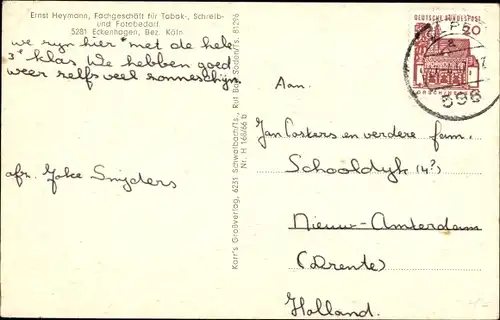 Ernst Heymann, Fachgeschäft für Tabak-, Schreib-
und Fotobedarf
5281 Eckenhagen, Bez. Köln
we zyn hier met de hele
3e klas We hebben goed
weer zelfs veel zonneschijn.
afz. Joke Snyders
Karr's Großverlag, 6231 Schwalbach/Ts., Ruf Bad Soden/Ts. 81296
Nr. H 168/66 b
DEUTSCHE BUNDESPOST
20
LORSCH/HESSEN
596
Aan.
Jan Costers en verdere fam.
Schooldyk (4?)
Nieuw-Amsterdam
(Drente)
Holland.